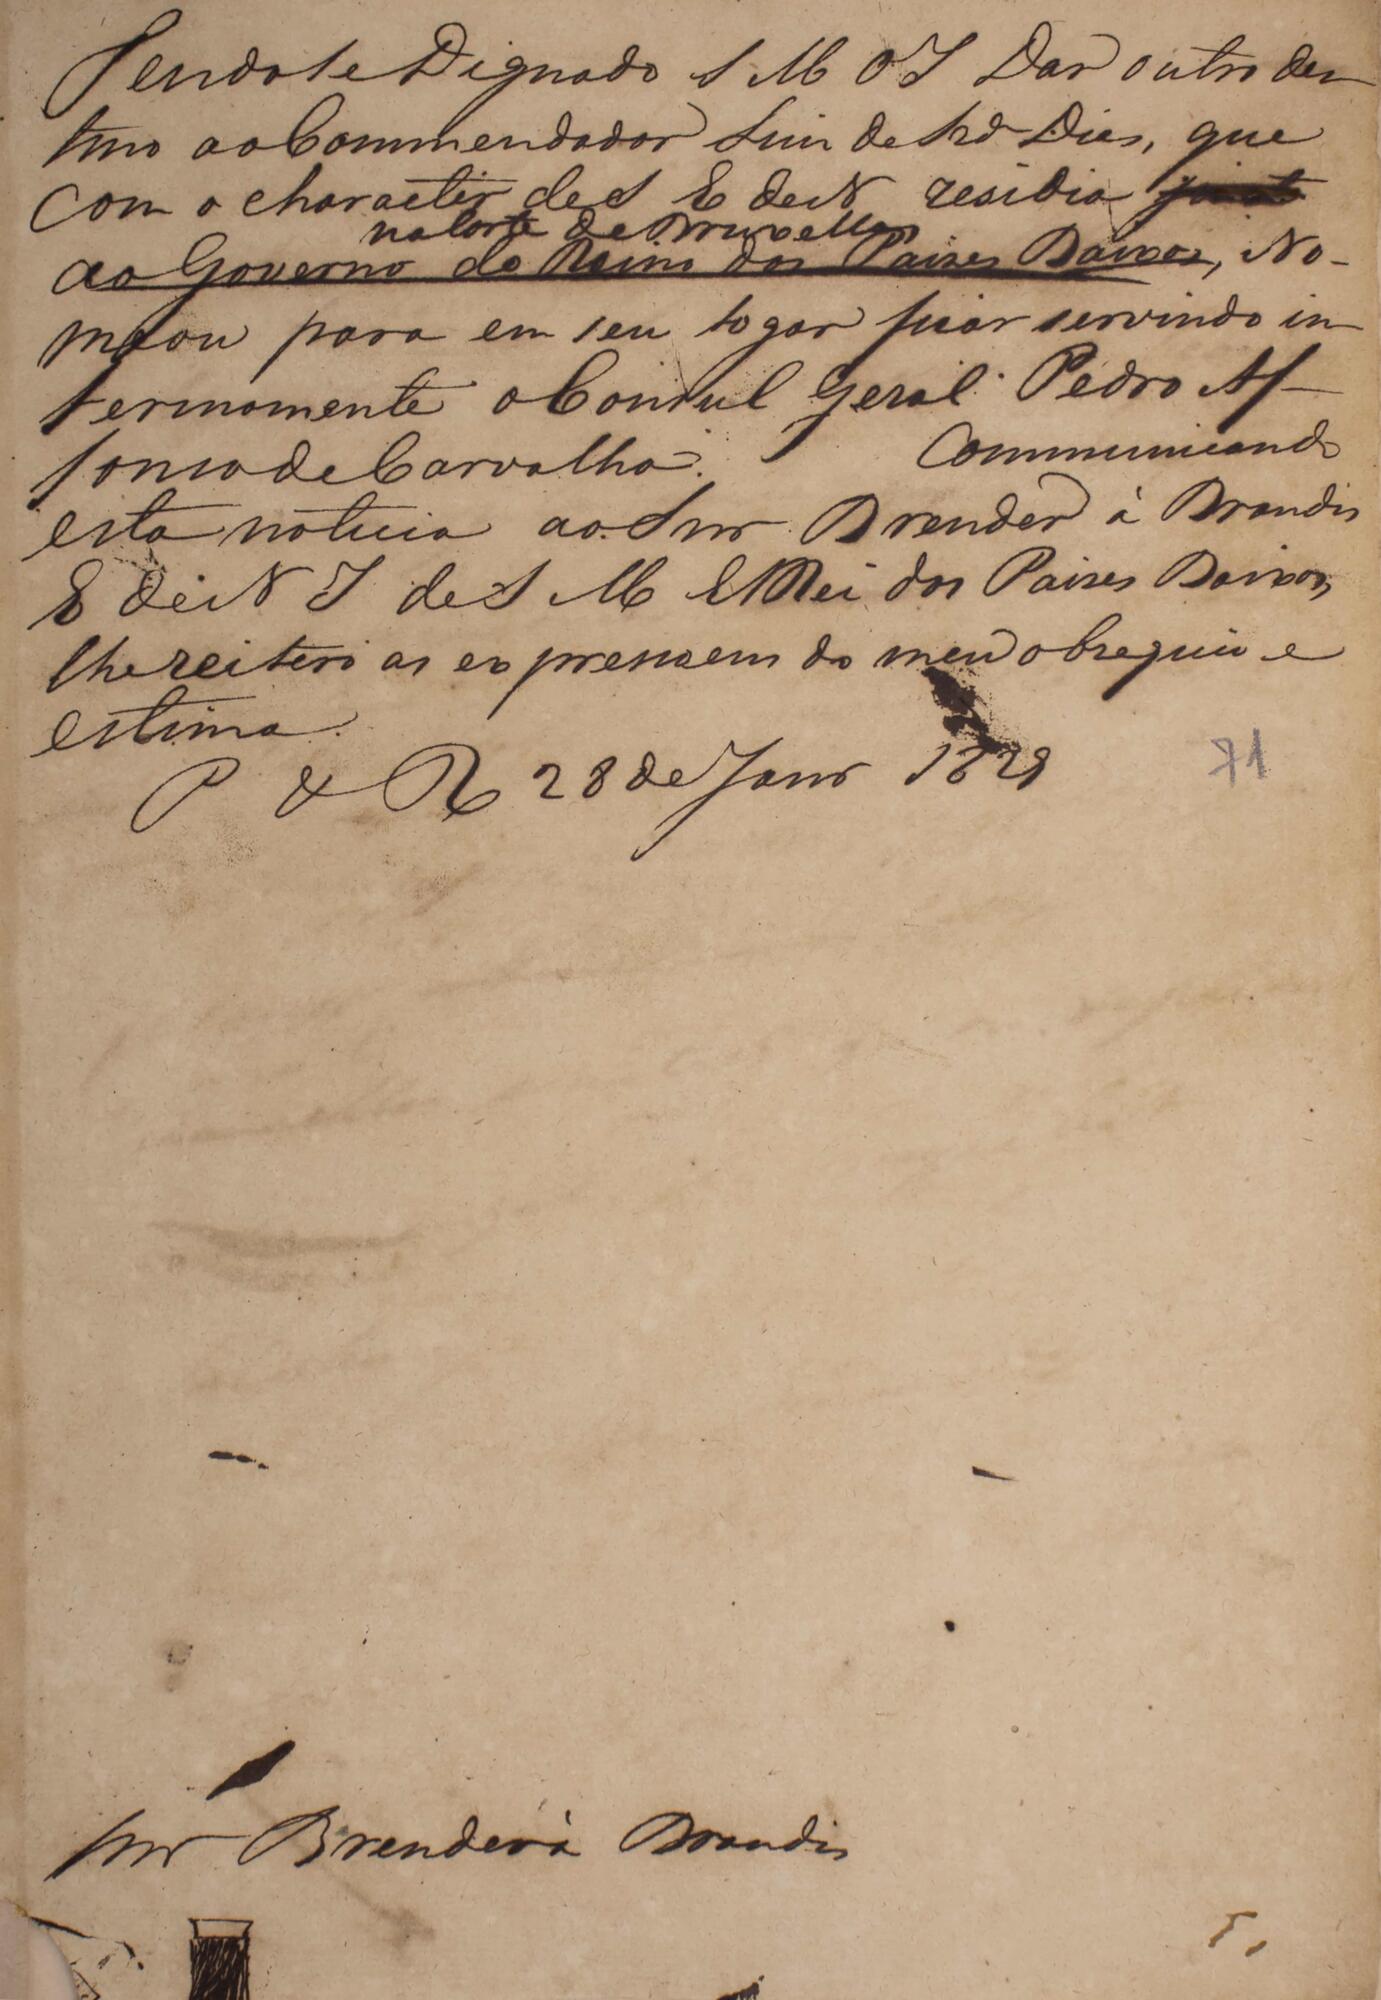 Tendose Dignado S M O I Dar outro des
tino ao Commendador Luiz de Dias, que
com o character de S E de N residia
na Corte de Bruxellas
ao Governo do Reino dos Paizes Baixos, No-
meou para em seu logar ficar servindo in
terinamente o Consul Geral Pedro Af-
fonso de Carvalho. Communicando
esta noticia ao Snr Brender à Brandis
E de N I de S M ElRei dos Paizes Baixos,
lhe reitero as expressoens do meu obsequio e
estima.
P R 28 de Janr 1829
71
Snr Brender à Brandis